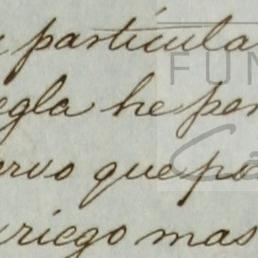 particula
egla he pen
ervo que po
riego mas
FUN